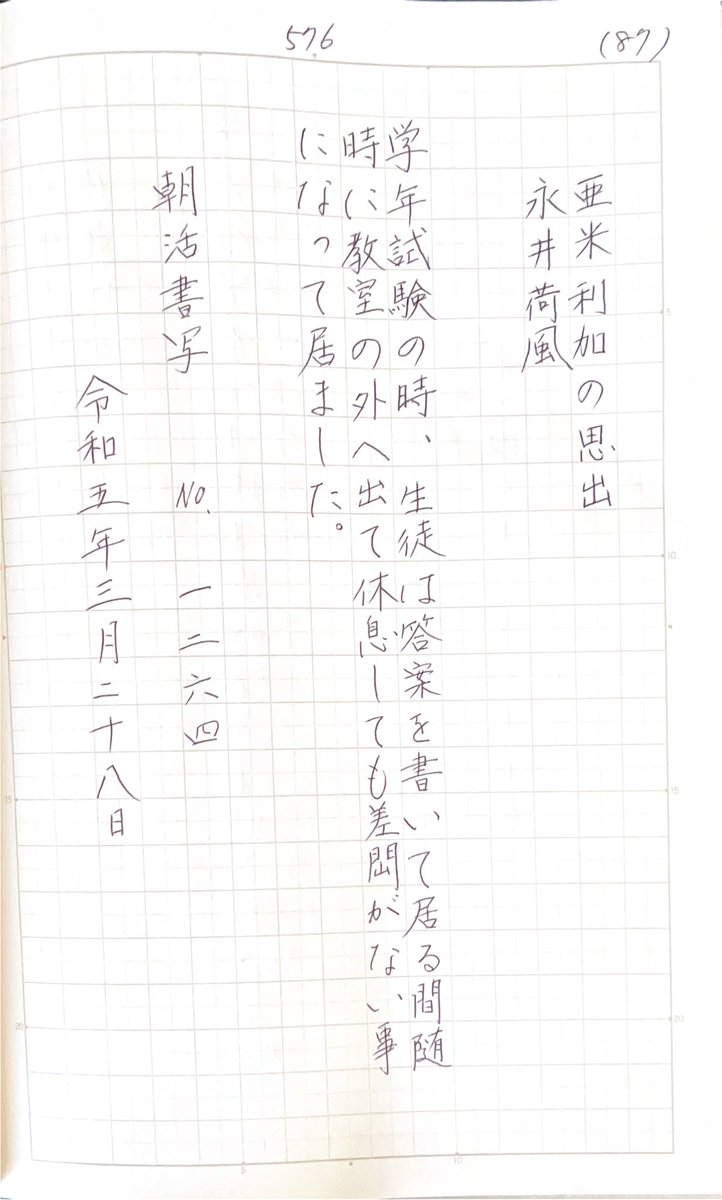 (87)
576
亜米利加の思出
永井荷風
学年試験の時、生徒は答案を書いて居る間随
時に教室の外へ出て休息しても差閊がない事
になって居ました。
朝活書写 No. 一二六四
令和五年三月二十八日
5
10
15
20
15
20
5
10